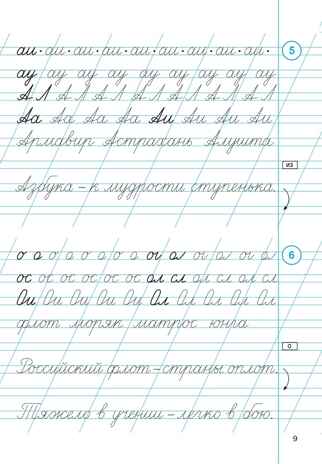 аи · аи · аи · аи · аи · аи · аи · аи · аи ·
5
ау ау ау ау ау ау ау ау ау
А Л А Л А Л А Л А Л А Л А Л
Аа Аа Аа Аа Аи Аи Аи Аи
Армавир Астрахань Алушта
из
Азбука – к мудрости ступенька.
6
ос ос ос ос ос ос ол сл ол сл ол сл
Ои Ои Ои Ои Ои Ол Ол Ол Ол Ол
флот моряк матрос юнга
о
Российский флот – страны оплот.
Тяжело в учении – легко в бою.
9